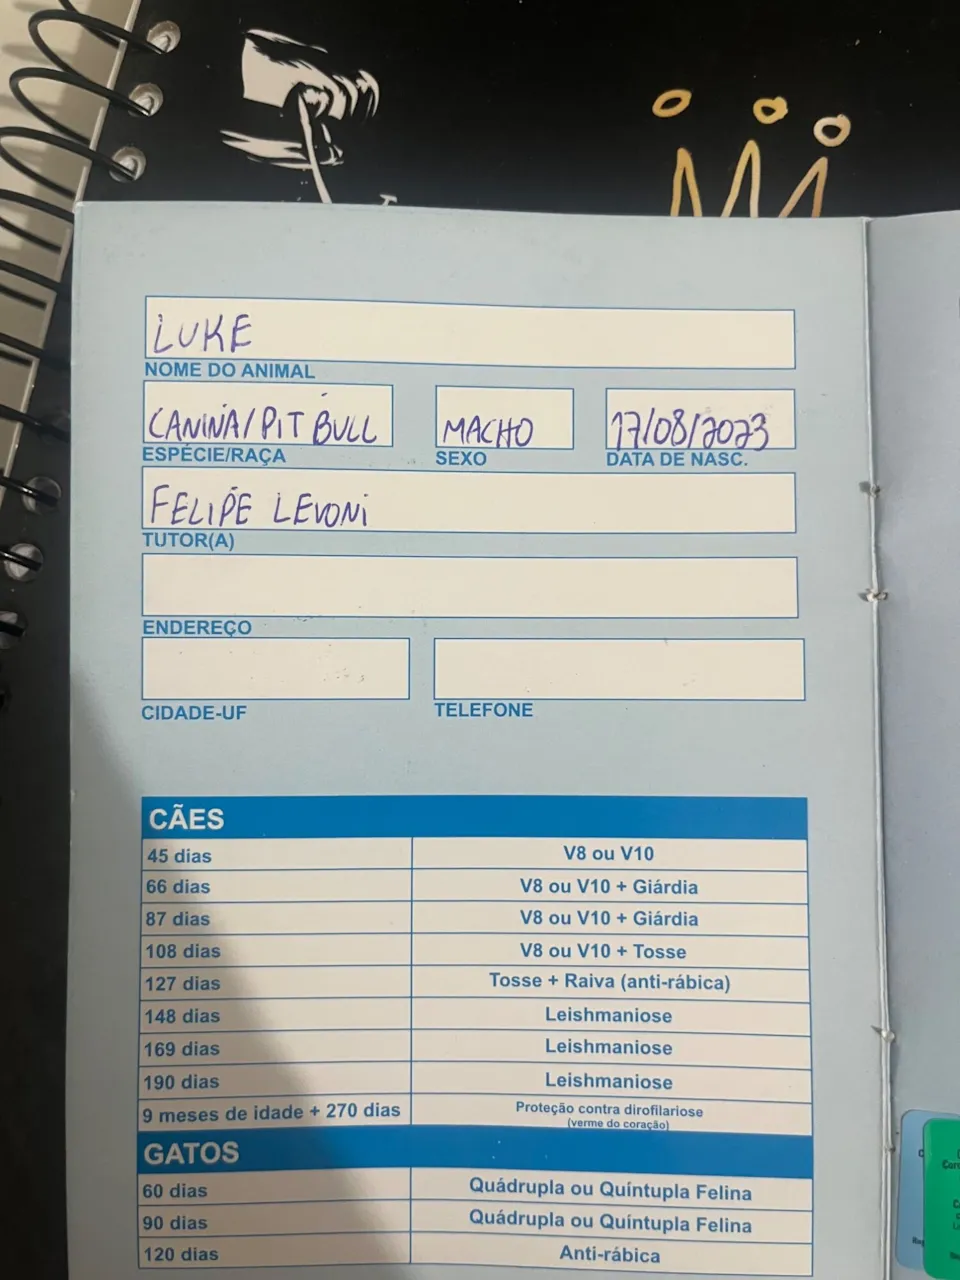 LUKE
NOME DO ANIMAL
CANINA/PIT BULL MACHO 17/08/2023
ESPÉCIE/RAÇA SEXO DATA DE NASC.
FELIPE LEVONI
TUTOR(A)
ENDEREÇO
CIDADE-UF TELEFONE
CÃES
45 dias V8 ou V10
66 dias V8 ou V10 + Giárdia
87 dias V8 ou V10 + Giárdia
108 dias V8 ou V10 + Tosse
127 dias Tosse + Raiva (anti-rábica)
148 dias Leishmaniose
169 dias Leishmaniose
190 dias Leishmaniose
9 meses de idade + 270 dias Proteção contra dirofilariose
(verme do coração)
GATOS
60 dias Quádrupla ou Quíntupla Felina
90 dias Quádrupla ou Quíntupla Felina
120 dias Anti-rábica